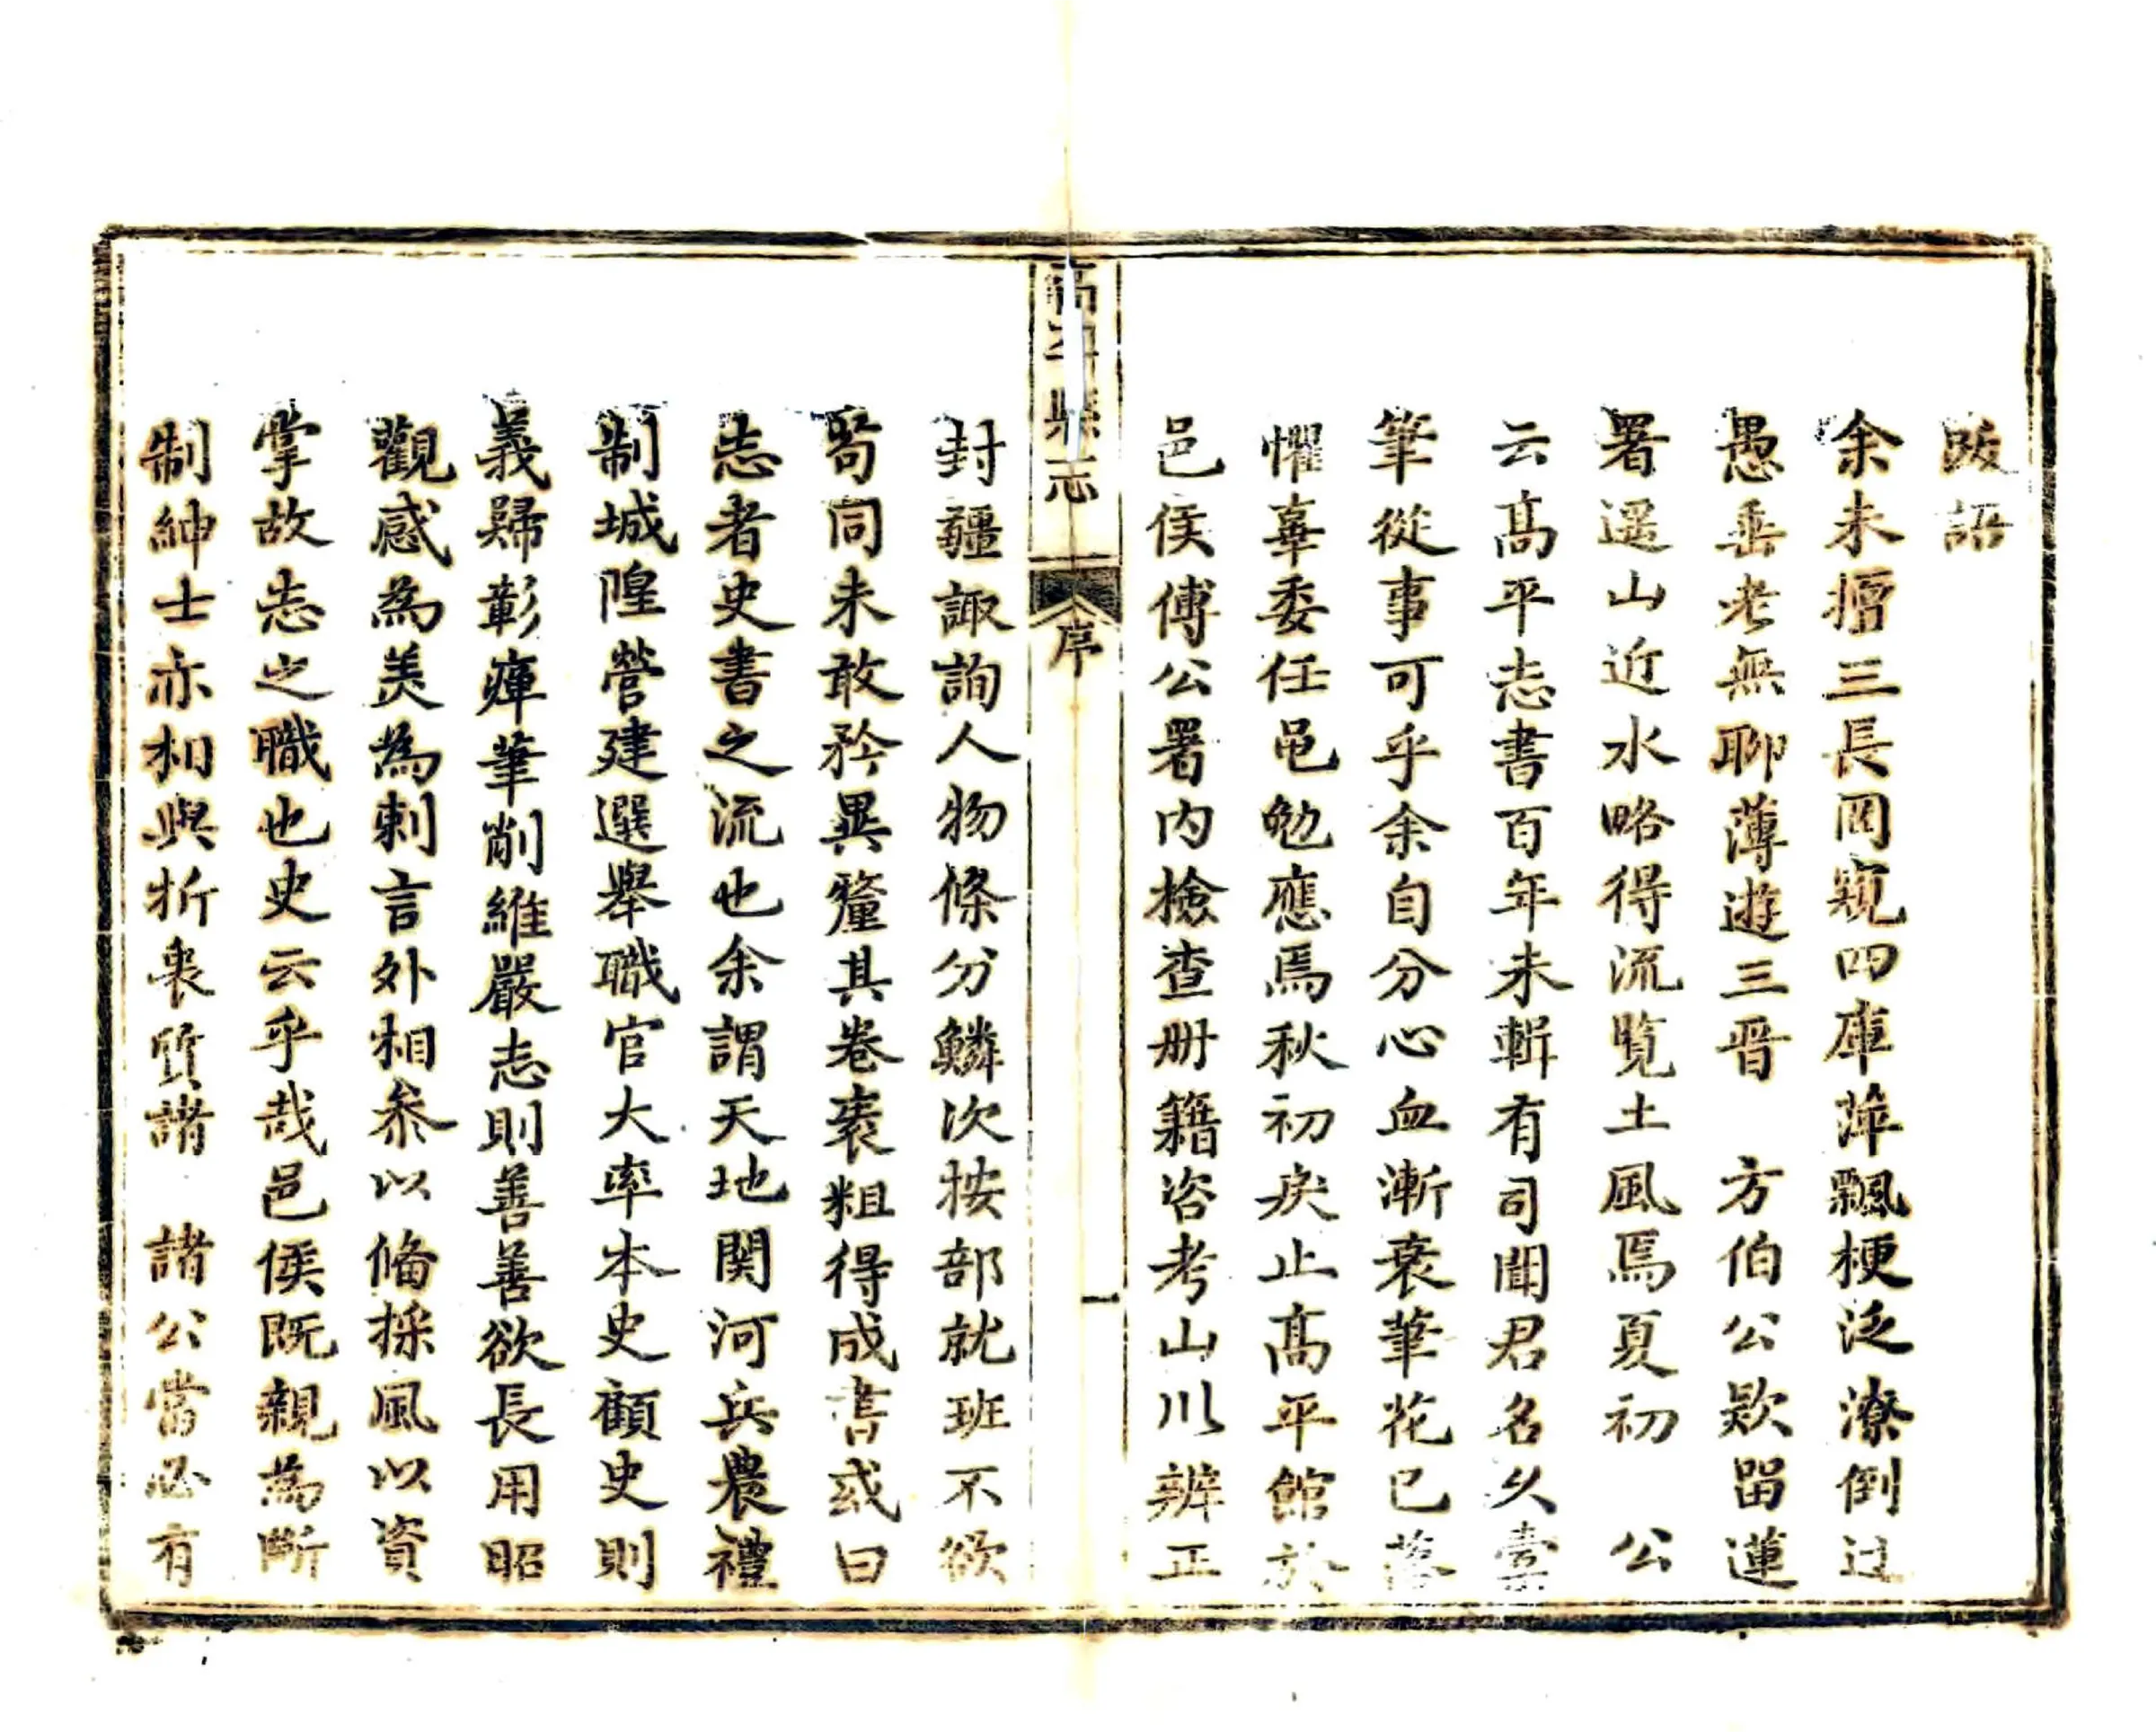 跋語
余未擅三長罔窺四庫萍飄梗泛潦倒过
愚垂老無聊薄遊三晋　方伯公欵畱蓮
署遥山近水略得流覧土風焉夏初　公
云髙平志書百年未輯有司聞君名久橐
筆從事可乎余自分心血漸衰筆花已落
懼辜委任黾勉應焉秋初戾止髙平館於
邑侯傅公署内檢查册籍咨考山川辨正
髙平縣志
序
一
封疆諏詢人物條分鱗次按部就班不欲
苟同未敢矜異釐其卷袠粗得成書或曰
志者史書之流也余謂天地関河兵農禮
制城隍營建選舉職官大率本史顧史則
義歸彰癉筆削維嚴志則善善欲長用昭
觀感為美為刺言外相叅以俻採風以資
掌故志之職也史云乎哉邑侯既親為斷
制紳士亦相與折衷質諸　諸公當必有